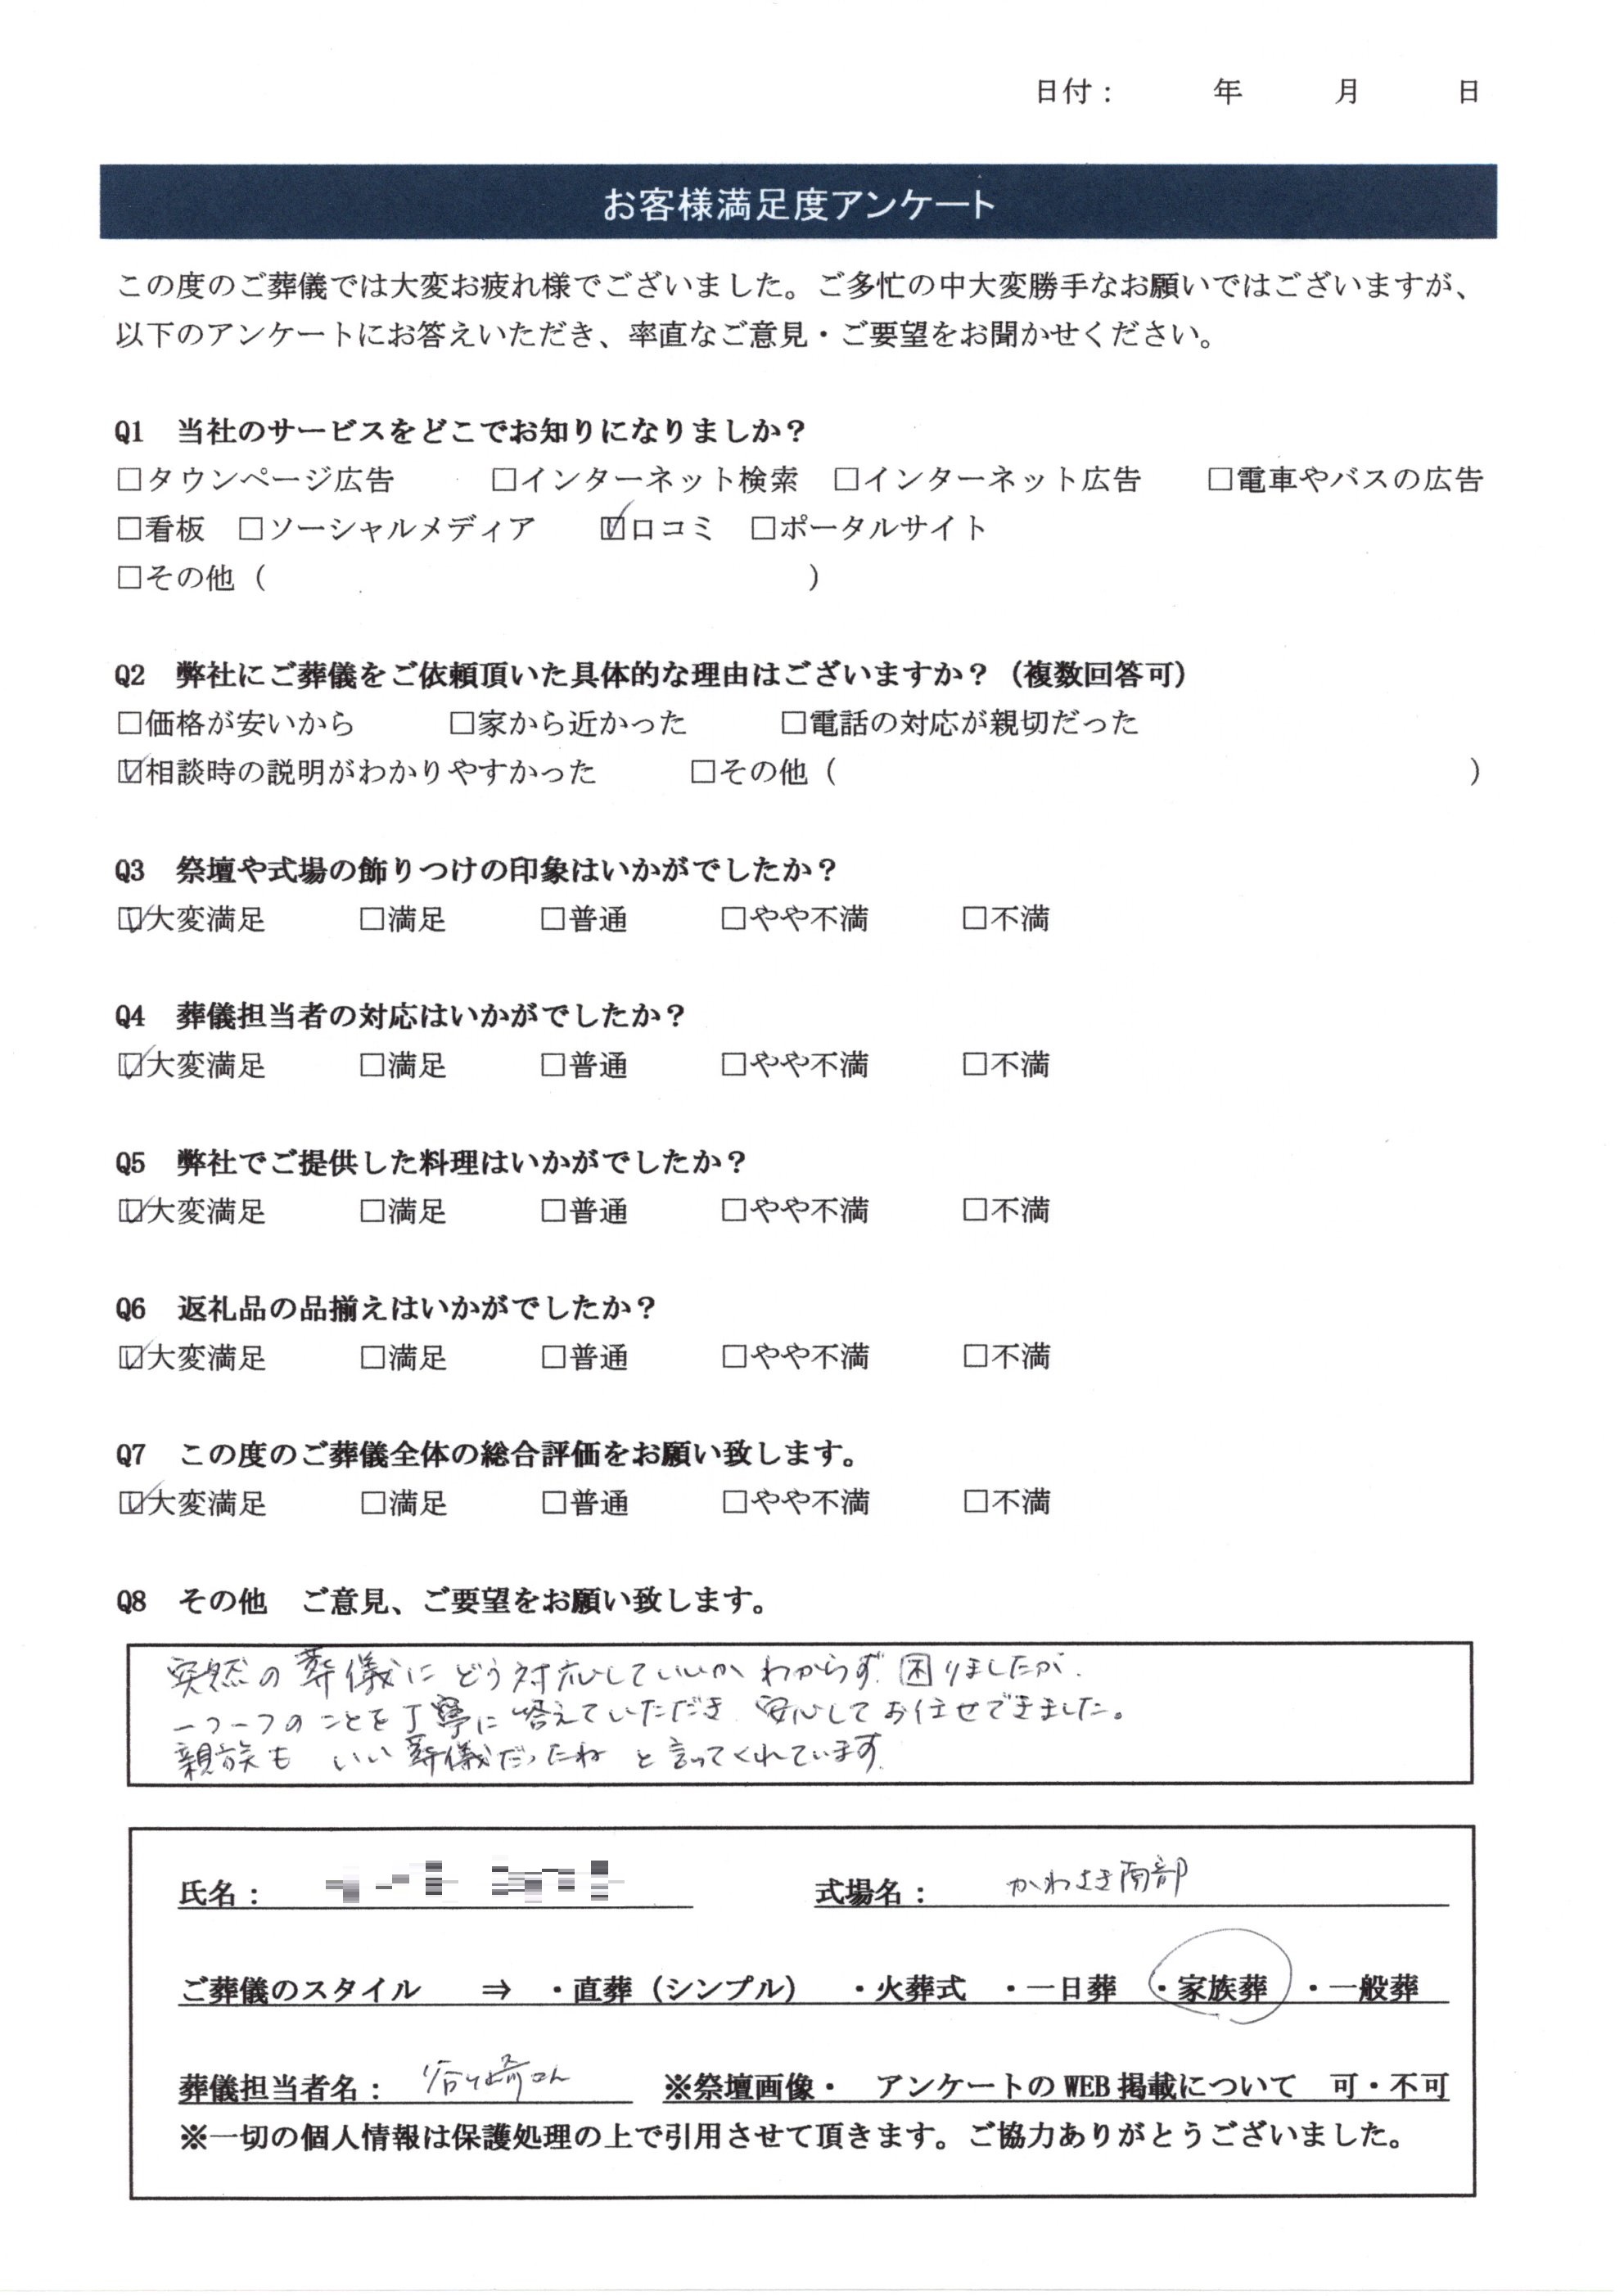 日付： 年 月 日
お客様満足度アンケート
この度のご葬儀では大変お疲れ様でございました。ご多忙の中大変勝手なお願いではございますが、
以下のアンケートにお答えいただき、率直なご意見・ご要望をお聞かせください。
Q1 当社のサービスをどこでお知りになりましか？
□タウンページ広告 □インターネット検索 □インターネット広告 □電車やバスの広告
□看板 □ソーシャルメディア ☑口コミ □ポータルサイト
□その他（ ）
Q2 弊社にご葬儀をご依頼頂いた具体的な理由はございますか？（複数回答可）
□価格が安いから □家から近かった □電話の対応が親切だった
☑相談時の説明がわかりやすかった □その他（ ）
Q3 祭壇や式場の飾りつけの印象はいかがでしたか？
☑大変満足 □満足 □普通 □やや不満 □不満
Q4 葬儀担当者の対応はいかがでしたか？
☑大変満足 □満足 □普通 □やや不満 □不満
Q5 弊社でご提供した料理はいかがでしたか？
☑大変満足 □満足 □普通 □やや不満 □不満
Q6 返礼品の品揃えはいかがでしたか？
☑大変満足 □満足 □普通 □やや不満 □不満
Q7 この度のご葬儀全体の総合評価をお願い致します。
☑大変満足 □満足 □普通 □やや不満 □不満
Q8 その他 ご意見、ご要望をお願い致します。
突然の葬儀にどう対応していいかわからず、困りましたが、
一つ一つのことを丁寧に答えていただき、安心してお任せできました。
親族も いい葬儀だったね と言ってくれています。
氏名： 式場名： かわさき南部
ご葬儀のスタイル ⇒ ・直葬（シンプル） ・火葬式 ・一日葬 ・家族葬 ・一般葬
葬儀担当者名： さん ※祭壇画像・ アンケートのWEB掲載について 可・不可
※一切の個人情報は保護処理の上で引用させて頂きます。ご協力ありがとうございました。